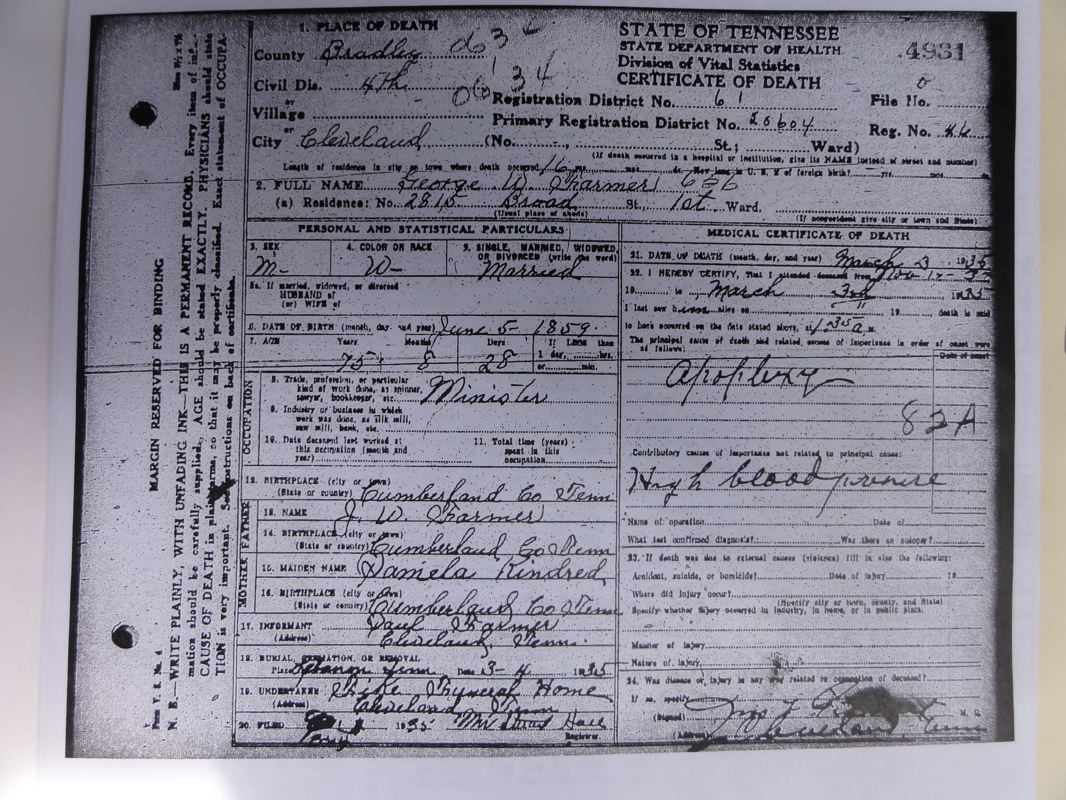 1. PLACE OF DEATH
County Bradley
Civil Dis. 4th
or
Village
or
City Cleveland (No. St.; Ward)
(If death occurred in a hospital or institution, give its NAME instead of street and number)
Length of residence in city or town where death occurred 16 yrs. mos. ds. How long in U. S. if of foreign birth? yrs. mos. ds.
STATE OF TENNESSEE
STATE DEPARTMENT OF HEALTH
Division of Vital Statistics
CERTIFICATE OF DEATH
4931
Registration District No. 61 File No.
Primary Registration District No. 20604 Reg. No. 46
2. FULL NAME George W. Farmer 636
(a) Residence: No. 2815 Broad St., 1st Ward,
(Usual place of abode) (If nonresident give city or town and State)
PERSONAL AND STATISTICAL PARTICULARS
3. SEX M-
4. COLOR OR RACE W-
5. SINGLE, MARRIED, WIDOWED, OR DIVORCED (write the word) Married
5a. If married, widowed, or divorced
HUSBAND of
(or) WIFE of
6. DATE OF BIRTH (month, day, and year) June 5- 1859.
7. AGE Years Months Days If LESS than
75 8 28 1 day, hrs.
or min.
OCCUPATION
8. Trade, profession, or particular
kind of work done, as spinner,
sawyer, bookkeeper, etc. Minister
9. Industry or business in which
work was done, as silk mill,
saw mill, bank, etc.
10. Date deceased last worked at
this occupation (month and
year)
11. Total time (years)
spent in this
occupation
12. BIRTHPLACE (city or town)
(State or country) Cumberland Co Tenn
FATHER
13. NAME J. W. Farmer
14. BIRTHPLACE (city or town)
(State or country) Cumberland Co Tenn
MOTHER
15. MAIDEN NAME Kindred
16. BIRTHPLACE (city or town)
(State or country) Cumberland Co Tenn
17. INFORMANT Paul Farmer
(Address) Cleveland, Tenn.
18. BURIAL, CREMATION, OR REMOVAL
Place Lebanon Tenn Date 3-4 1935
19. UNDERTAKER Funeral Home
(Address) Cleveland Tenn
20. FILED 1935
Registrar.
MEDICAL CERTIFICATE OF DEATH
21. DATE OF DEATH (month, day, and year) March 3 1935
22. I HEREBY CERTIFY, That I attended deceased from Nov
19 to March 3rd 1935
I last saw him alive on 19 death is said
to have occurred on the date stated above, at 1:35 a.m.
The principal cause of death and related causes of importance in order of onset were
as follows:
Date of onset
Apoplexy
82A
Contributory causes of importance not related to principal cause:
High blood pressure
Name of operation Date of
What test confirmed diagnosis? Was there an autopsy?
23. If death was due to external causes (violence) fill in also the following:
Accident, suicide, or homicide? Date of injury 19
Where did injury occur?
(Specify city or town, county, and State)
Specify whether injury occurred in industry, in home, or in public place.
Manner of injury
Nature of injury
24. Was disease or injury in any way related to occupation of deceased?
If so, specify
(Signed) M. D.
(Address) Cleveland, Tenn
MARGIN RESERVED FOR BINDING
N. B.—WRITE PLAINLY, WITH UNFADING INK—THIS IS A PERMANENT RECORD. Every item of infor-
mation should be carefully supplied. AGE should be stated EXACTLY. PHYSICIANS should state
CAUSE OF DEATH in plain terms, so that it may be properly classified. Exact statement of OCCUPA-
TION is very important. See instructions on back of certificate.